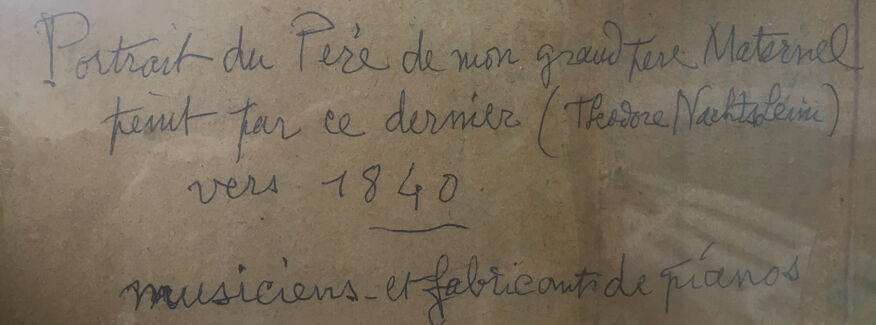 Portrait du Père de mon grand père Maternel
peint par ce dernier (Théodore Nachtsheim)
vers 1840
musiciens - et fabricants de pianos